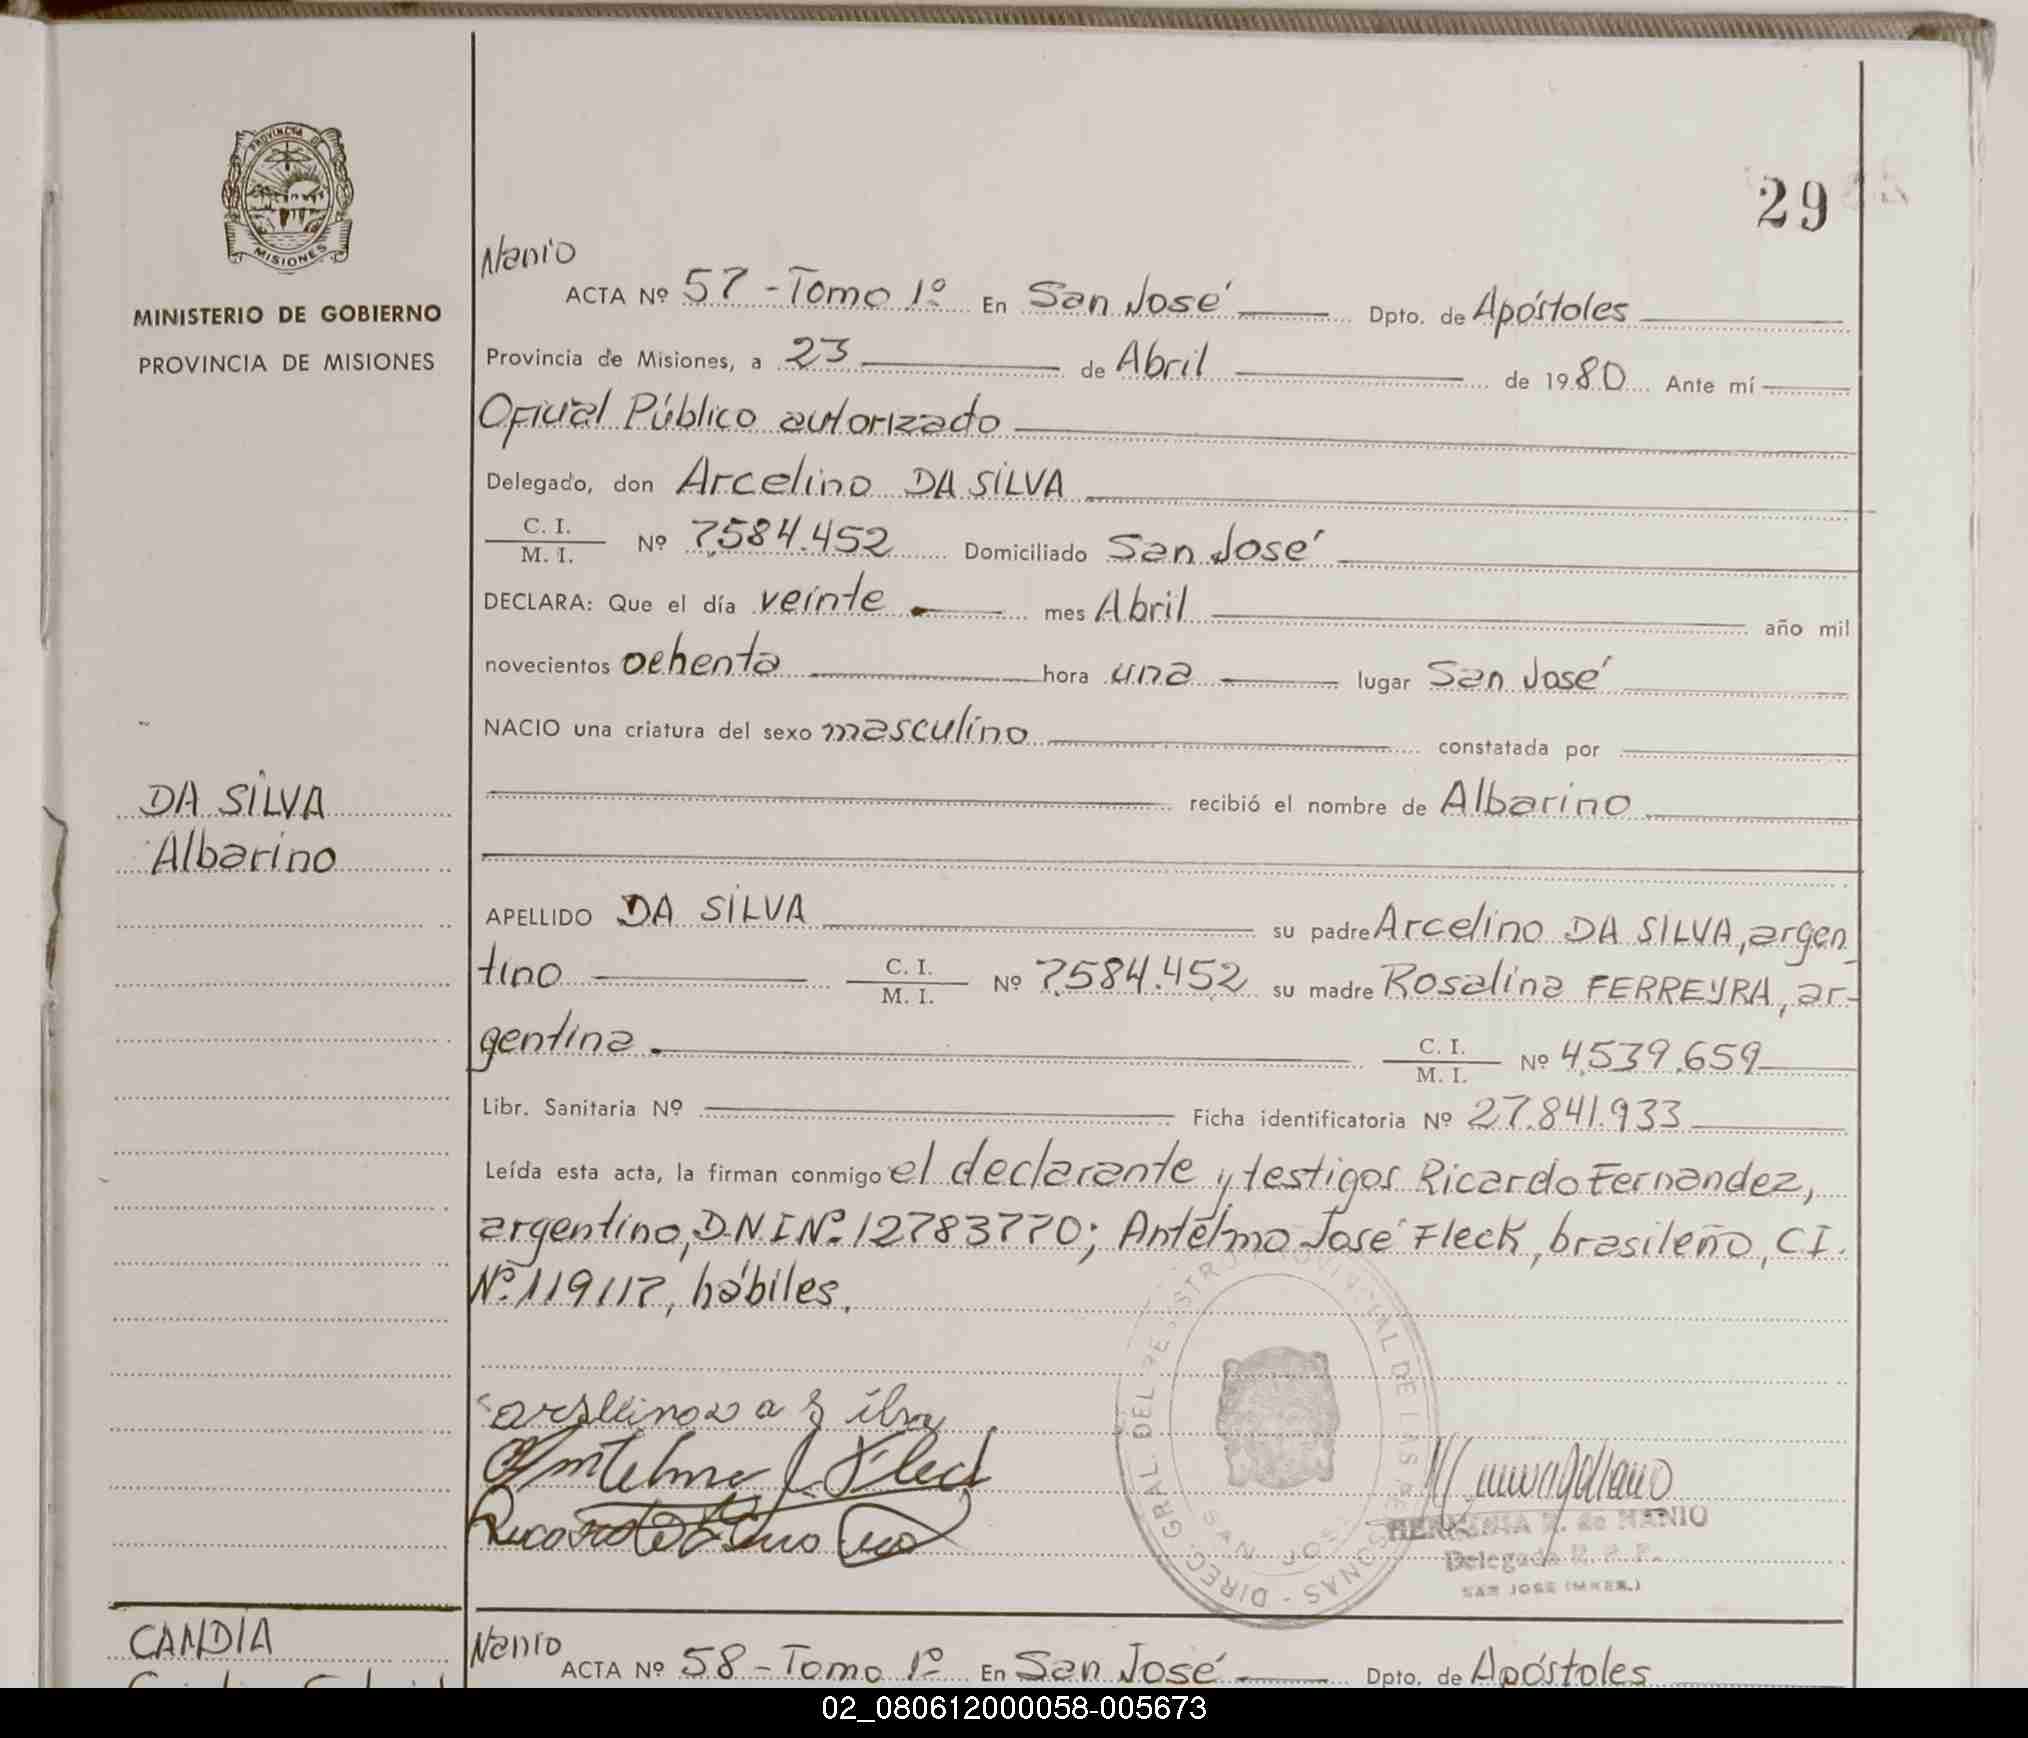 29
PROVINCIA DE
MISIONES
MINISTERIO DE GOBIERNO
PROVINCIA DE MISIONES
Nanio
ACTA Nº 57 - Tomo 1º En San José Dpto. de Apóstoles
Provincia de Misiones, a 23 de Abril de 1980 Ante mí
Oficial Público autorizado
Delegado, don Arcelino DA SILVA
C. I.
M. I. Nº 7.584.452 Domiciliado San José
DECLARA: Que el día veinte mes Abril año mil
novecientos ochenta hora una lugar San José
NACIO una criatura del sexo masculino constatada por
recibió el nombre de Albarino
DA SILVA
Albarino
APELLIDO DA SILVA su padre Arcelino DA SILVA, argen
tino C. I.
M. I. Nº 7.584.452 su madre Rosalina FERREYRA, ar-
gentina. C. I.
M. I. Nº 4.539.659
Libr. Sanitaria Nº Ficha identificatoria Nº 27.841.933
Leída esta acta, la firman conmigo el declarante y testigos Ricardo Fernandez,
argentino, D.N.I Nº 12783770; Antelmo José Fleck, brasileño, C.I.
Nº 119117, hábiles.
Antelmo J. Fleck
DIREC. GRAL. DEL REGISTRO PROVINCIAL DE LAS PERSONAS
SAN JOSE
HERMINIA R. de NANIO
Delegada R. P. P.
SAN JOSE (MNES.)
CANDIA
Nanio
ACTA Nº 58 - Tomo 1º En San José Dpto. de Apóstoles
02_080612000058-005673